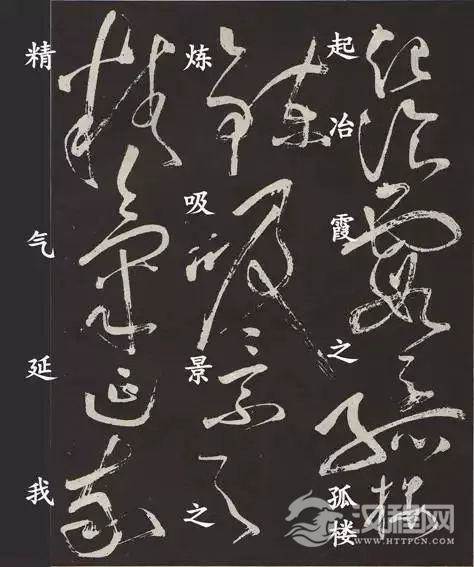 起冶霞之孤楼
炼吸景之
精气延我
汉程网
WWW.HTTPCN.COM